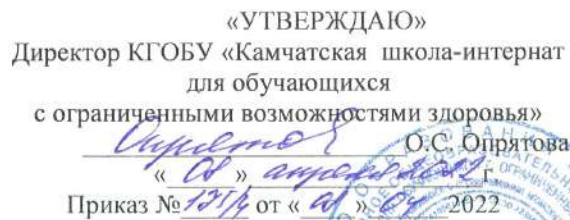 «УТВЕРЖДАЮ»
Директор КГОБУ «Камчатская школа-интернат
для обучающихся
с ограниченными возможностями здоровья»
О.С. Опрятова
« » апреля г
Приказ № от « » 04 2022